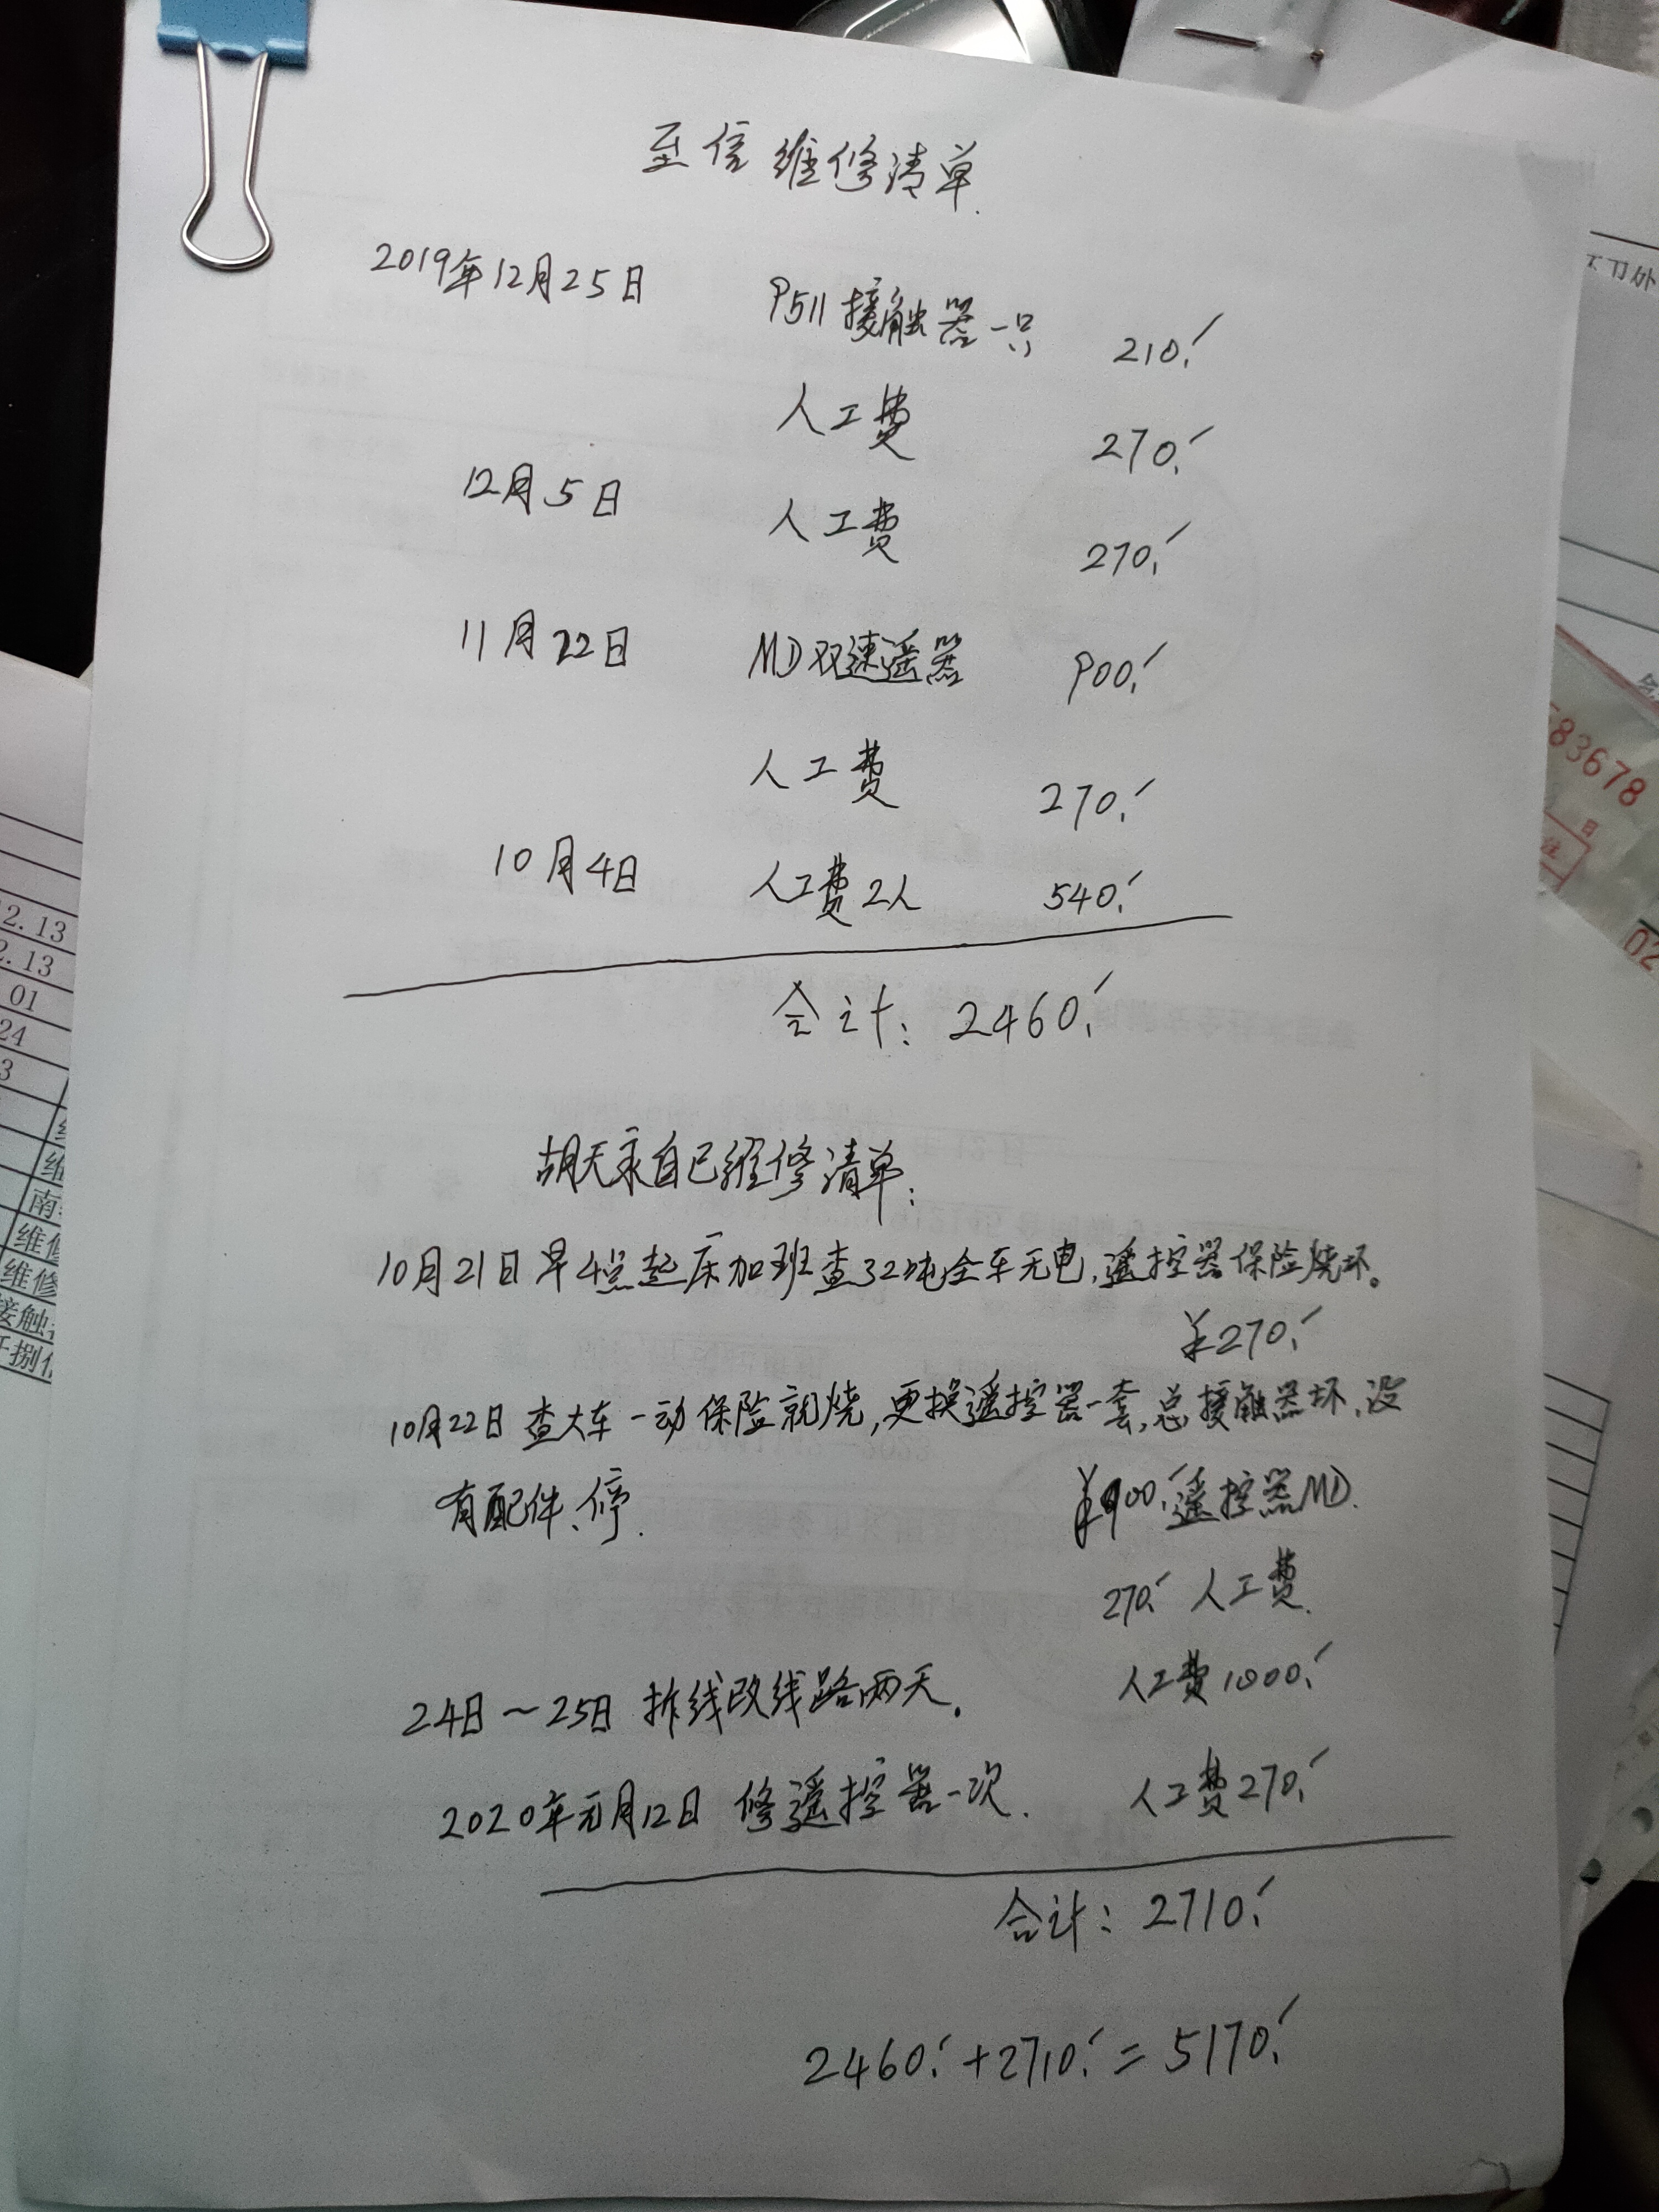 至信维修清单.
2019年12月25日 P511接触器一只 210.
人工费 270.
12月5日 人工费 270.
11月22日 MD双速遥器 900.
人工费 270.
10月4日 人工费2人 540.
合计: 2460.
胡天永自己维修清单:
10月21日早4点起床加班查32吨全车无电,遥控器保险烧坏。
¥270.
10月22日查大车一动保险就烧,更换遥控器一套,总接触器坏,没
有配件、停. ¥900.遥控器MD.
270. 人工费.
24日~25日拆线改线路两天。 人工费1000.
2020年元月12日 修遥控器一次. 人工费270.
合计: 2710.
2460.+2710.=5170.
583678
日
02
2.13
2.13
01
24
3
南
维修
维修
接触